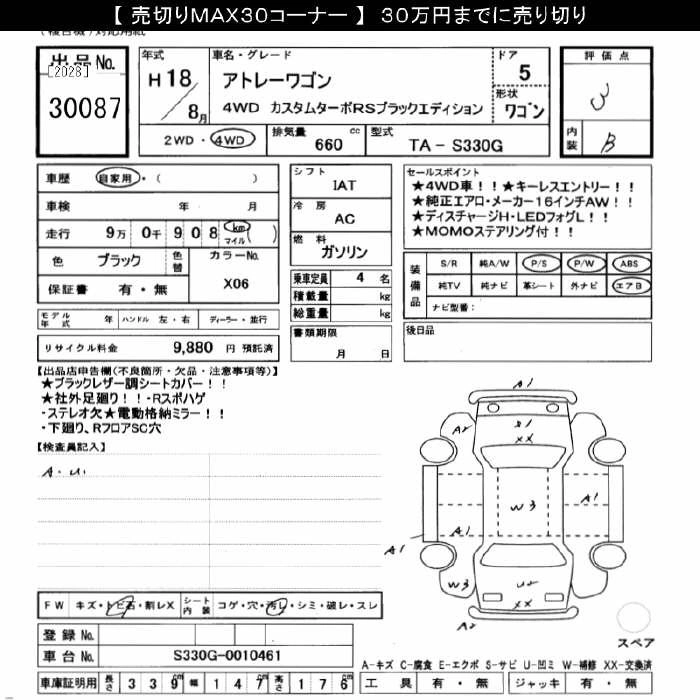 【 売切りMAX30コーナー 】 30万円までに売り切り
出品No.
[2028]
30087
年式
H 18
8月
車名・グレード
アトレーワゴン
4WD カスタムターボRSブラックエディション
ドア
5
形状
ワゴン
2WD・4WD
排気量
660 cc
型式
TA - S330G
評価点
3
内装
B
車歴 自家用・( )
車検 年 月
走行 9万 0千 908 km マイル ( )
色 ブラック 色替 カラーNo.
X06
保証書 有・無
モデル年式 年 ハンドル 左・右 ディーラー・並行
リサイクル料金 9,880 円 預託済
シフト
IAT
冷房
AC
燃料
ガソリン
乗車定員 4 名
積載量 kg
総重量 kg
書類期限
月 日
セールスポイント
★4WD車!!★キーレスエントリー!!
★純正エアロ・メーカー16インチAW!!
★ディスチャージH・LEDフォグL!!
★MOMOステアリング付!!
装備品
S/R 純A/W P/S P/W ABS
純TV 純ナビ 革シート 外ナビ エアB
ナビ型番:
後日品
【出品店申告欄(不良箇所・欠品・注意事項等)】
★ブラックレザー調シートカバー!!
★社外足廻り!!・Rスポハゲ
・ステレオ欠★電動格納ミラー!!
・下廻り、RフロアSC穴
【検査員記入】
A・U
A1
A2
XX
W3
A1
A1
A1
W3
U2
XX
A2
スペア
FW キズ・トビ石・割レX シート内装 コゲ・穴・汚レ・シミ・破レ・スレ
登録No.
車台No. S330G-0010461
A-キズ C-腐食 E-エクボ S-サビ U-凹ミ W-補修 XX-交換済
車庫証明用 長さ 339cm 幅 147cm 高さ 176cm
工具 有・無 ジャッキ 有・無